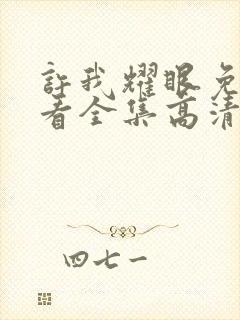 許我耀眼免
看全集高清
四七一